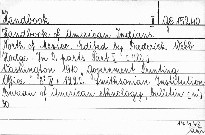 Handbook II
Handbook of American Indians
North of Mexico. Edited by Frederick Webb
Hodge. In 2 parts. Part
Washington 1910, Government Printing
Office. 1221. Smithsonian Institution
Bureau of American ethnology, bulletin
30